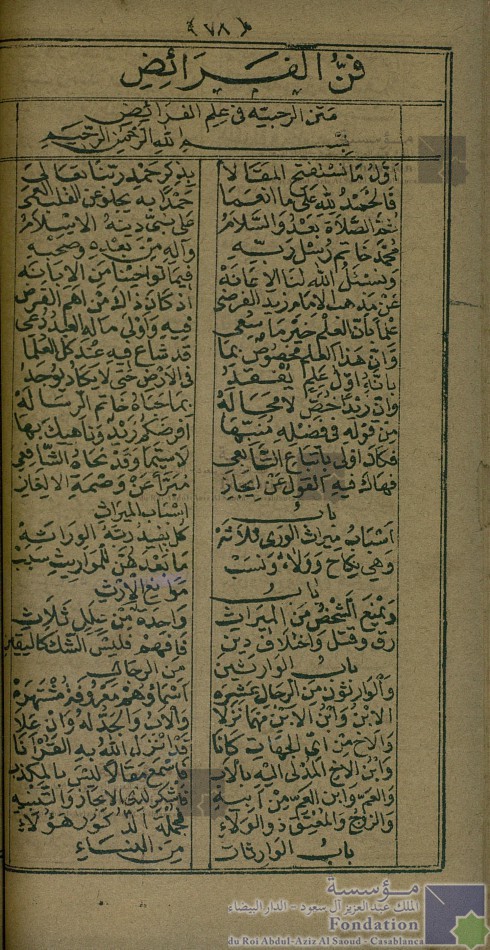 ﴿٧٨﴾
فنُّ الفرائض
متن الرحبيه فى علم الفرائض
بسم الله الرحمن الرحيم
أوّل ما نستفتح المقالا بذكر حمد ربّنا تعالى
فالحمد لله على ما أنعما حمدا به يجلو عن القلب العمى
ثم الصّلاة بعد والسّلام على نبيّ دينه الإسلام
محمد خاتم رسل ربّه وآله من بعده وصحبه
ونسئل الله لنا الإعانه فيما توخينا من الإبانه
عن مذهب الإمام زيد الفرضي اذ كان ذاك من اهم الغرض
علما بأنّ العلم خير ما سعي فيه وأولى ما له العبد دعي
وانّ هذا العلم مخصوص بما قد شاع فيه عند كل العلما
بأنّه اوّل علم يفقد فى الأرض حتى لا يكاد يوجد
وانّ زيدا خصّ لا محاله بما حباه خاتم الرساله
من قوله فى فضله منبّها افرضكم زيد وناهيك بها
فكان اولى باتباع التابعي لاسيما وقد نحاه الشّافعي
فهاك فيه القول عن إيجاز مبرّأ عن وصمة الالغاز
باب اسباب الميراث
اسباب ميراث الورى ثلاثه كل يفيد ربّه الوراثه
وهي نكاح وولاء ونسب ما بعدهنّ للمواريث سبب
باب موانع الإرث
ويمنع الشّخص من الميراث واحدة من علل ثلاث
رق وقتل واختلاف دين فافهم فليس الشك كاليقين
باب الوارثين من الرجال
والوارثون من الرجال عشره اسماؤهم معروفة مشتهره
الابن وابن الابن مهما نزلا والأب والجدّ له وإن علا
والاخ من اي الجهات كانا قد انزل الله به القرآنا
وابن الاخ المدلى اليه بالاب فاسمع مقالا ليس بالمكذب
والعمّ وابن العمّ من ابيه فاشكر لذي الايجاز والتنبيه
والزوج والمعتق ذو الولاء فجملة الذكور هؤلاء
باب الوارثات من النساء
مؤسسة
الملك عبد العزيز آل سعود - الدار البيضاء
Fondation
du Roi Abdul-Aziz Al Saoud - Casablanca